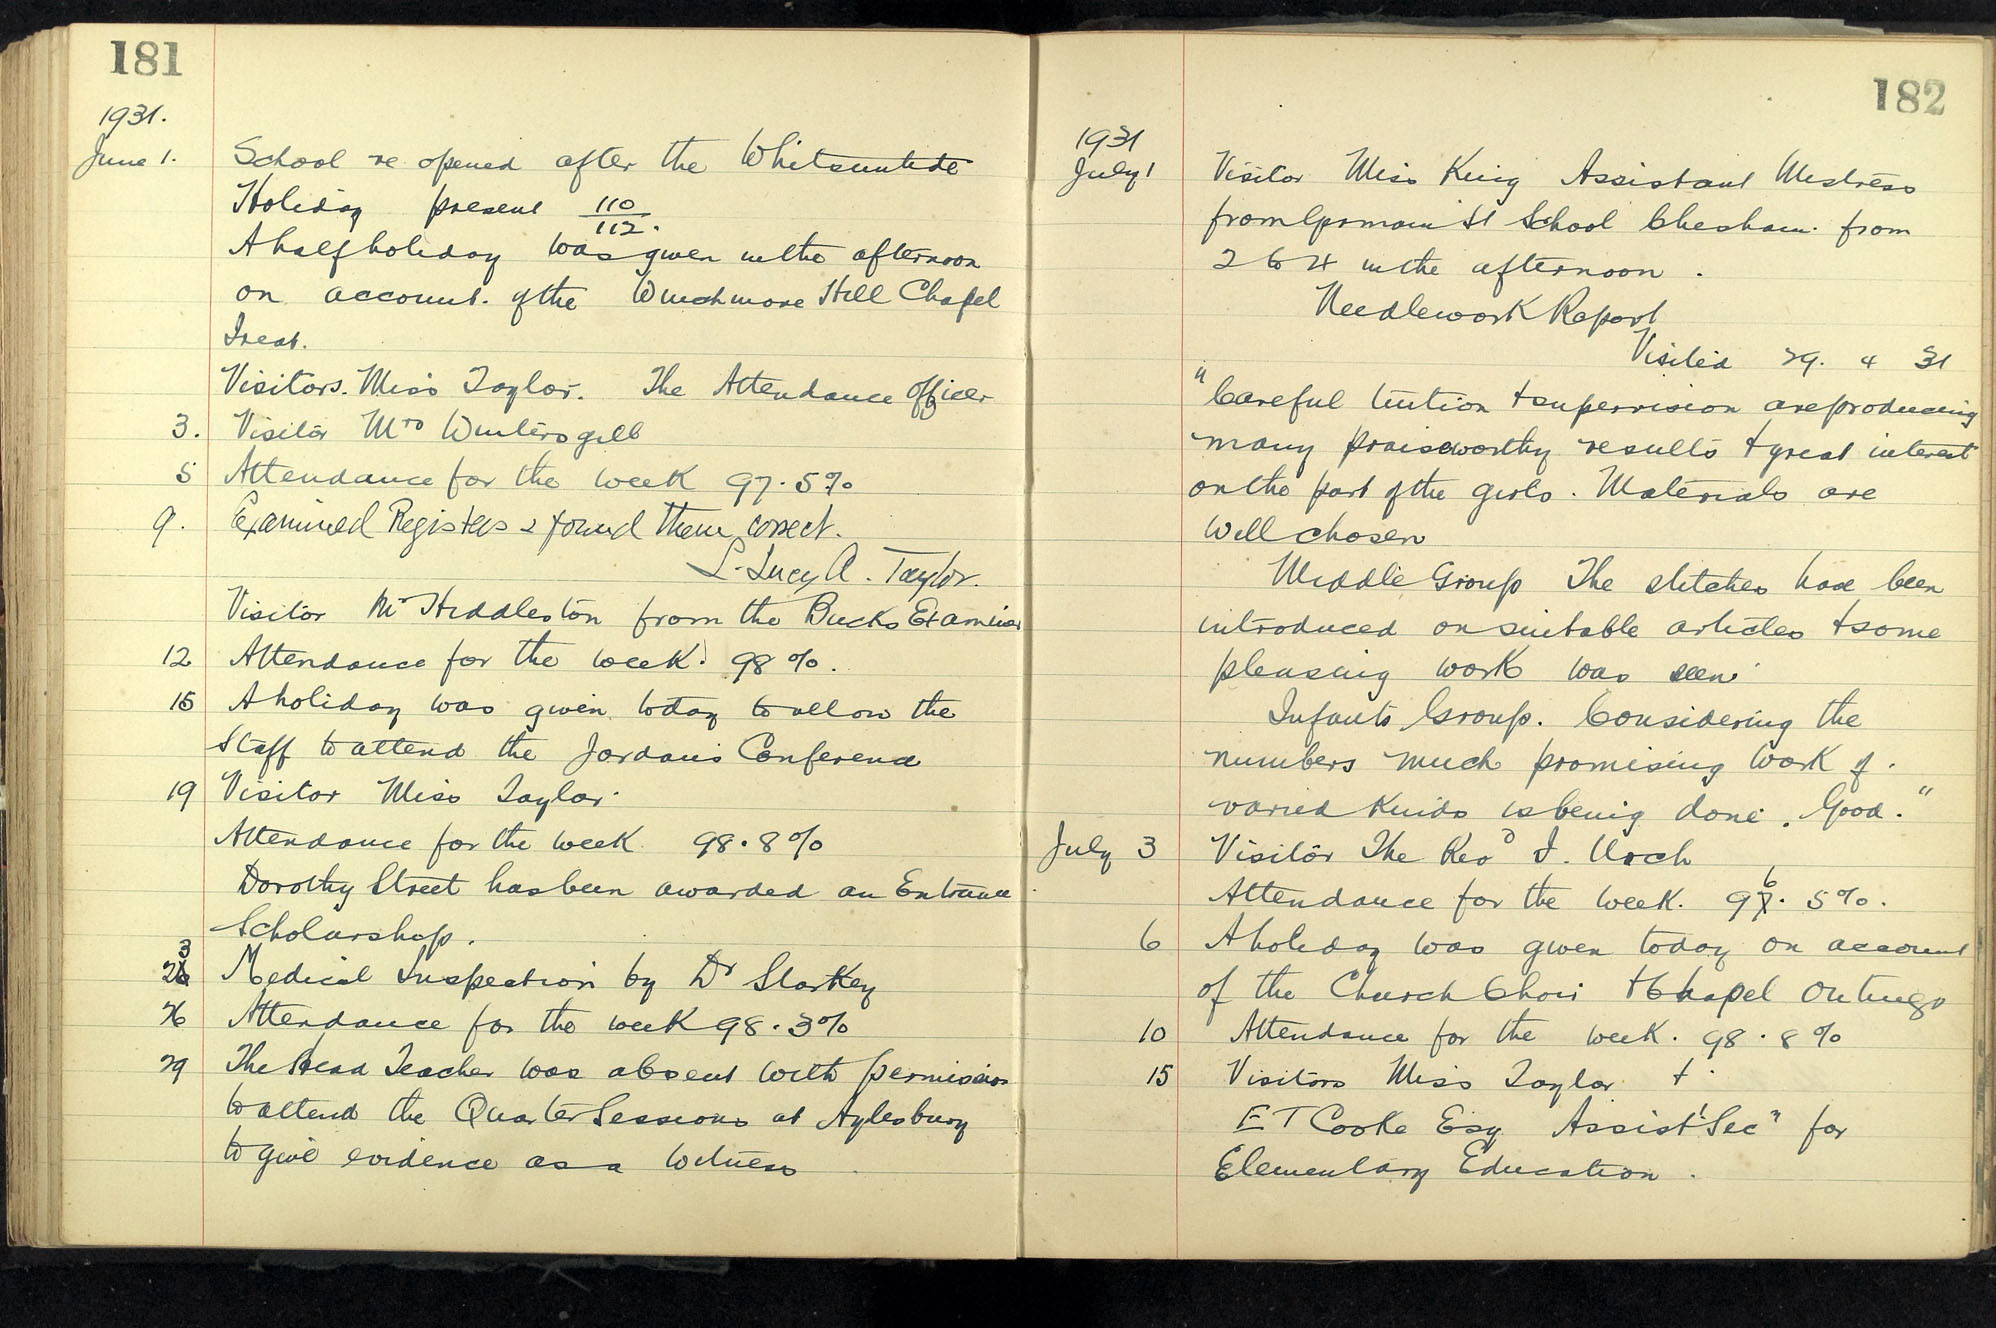 181
1931.
June 1. School re opened after the Whitsuntide
Holiday present 110/112.
A half holiday was given in the afternoon
on account. of the Winchmore Hill Chapel
Treat.
Visitors. Miss Taylor. The Attendance Officer
3. Visitor Mrs Wintersgill
5 Attendance for the week 97.5%
9. Examined Registers & found them correct.
L. Lucy A. Taylor.
Visitor Mr Hiddleston from the Bucks Examiner
12 Attendance for the week. 98%.
15 A holiday was given today to allow the
Staff to attend the Jordans Conference
19 Visitor Miss Taylor.
Attendance for the week 98.8%
Dorothy Street has been awarded an Entrance
Scholarship.
23 Medical Inspection by Dr Starkey
26 Attendance for the week 98.3%
29 The Head Teacher was absent with permission
to attend the Quarter Sessions at Aylesbury
to give evidence as a Witness
182
1931
July 1 Visitor Miss King Assistant Mistress
from Germain St School Chesham. from
2 to 4 in the afternoon.
Needlework Report
Visited 29. 4 31
"Careful tuition + supervision are producing
many praiseworthy results + great interest
on the part of the girls. Materials are
well chosen
Middle Group The stitches have been
introduced on suitable articles + some
pleasing work was seen.
Infants Group. Considering the
numbers much promising work of.
varied kinds is being done. Good."
July 3 Visitor The Revd I.
Attendance for the week. 96.5%.
6 A holiday was given today on account
of the Church Choir + Chapel Outings
10 Attendance for the week. 98.8%
15 Visitors Miss Taylor +
E T Cooke Esq Assist Sec" for
Elementary Education.